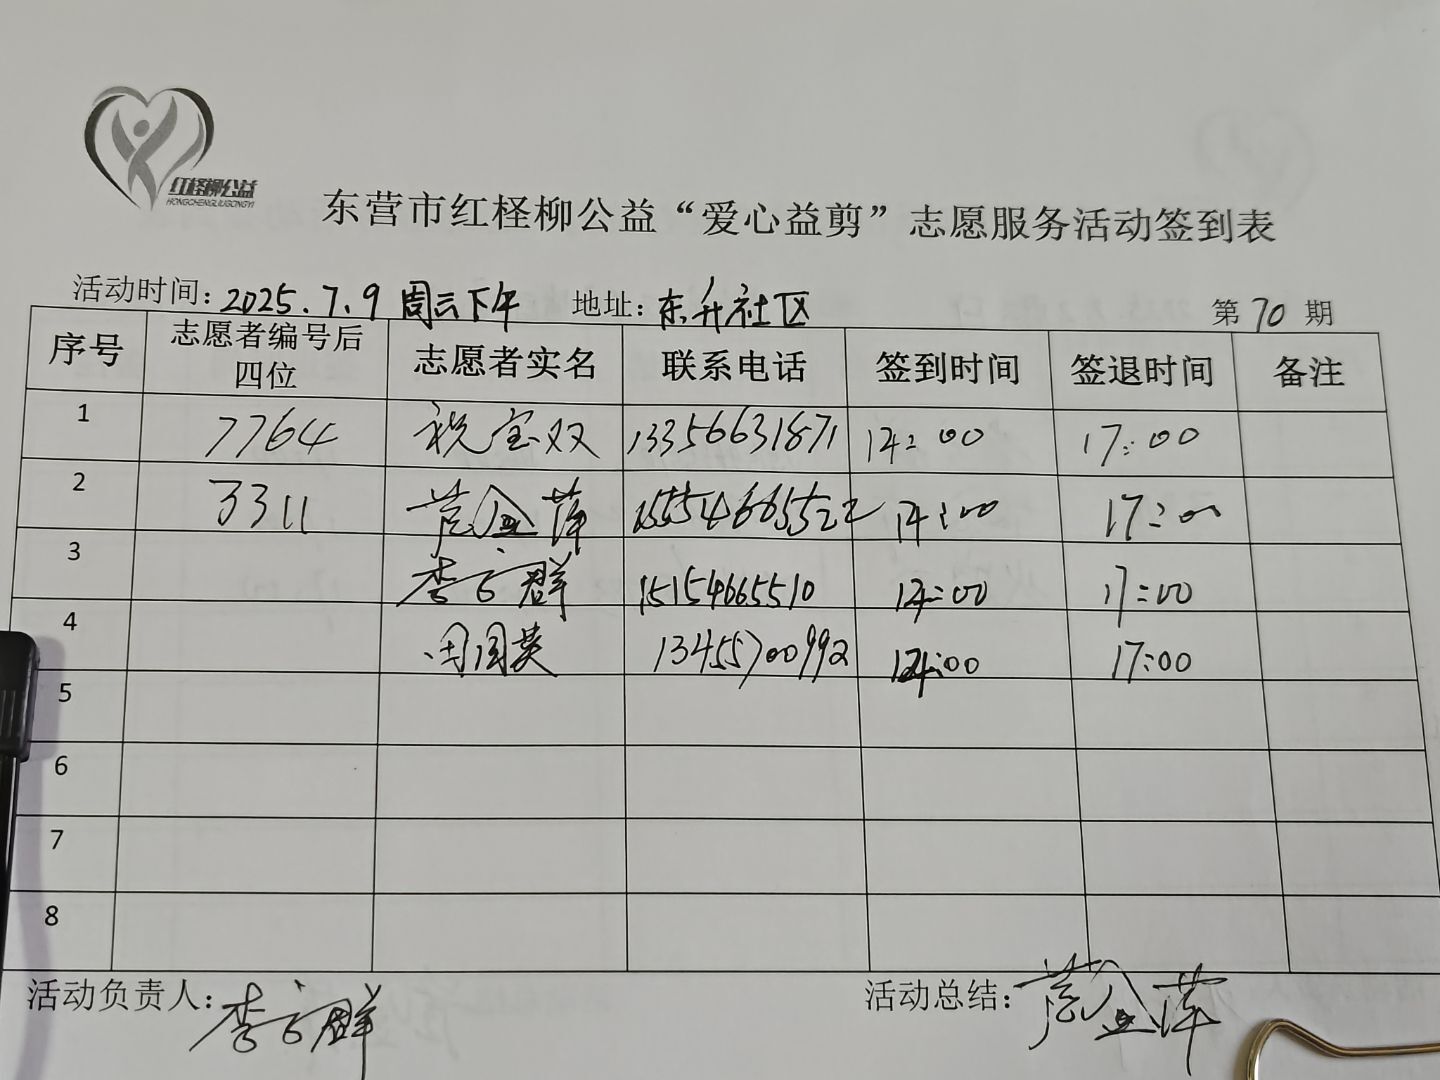 红柽柳公益
HONGCHENGLIUGONGYI
东营市红柽柳公益“爱心益剪”志愿服务活动签到表
活动时间：2025.7.9 周三下午 地址：东升社区 第 70 期
序号 志愿者编号后四位 志愿者实名 联系电话 签到时间 签退时间 备注
1 7764 祝宝双 13356631871 14:00 17:00
2 3311 金萍 15554665522 14:00 17:00
3 李方群 15154665510 14:00 17:00
4 田国英 13455700992 14:00 17:00
5
6
7
8
活动负责人：李方群 活动总结：金萍